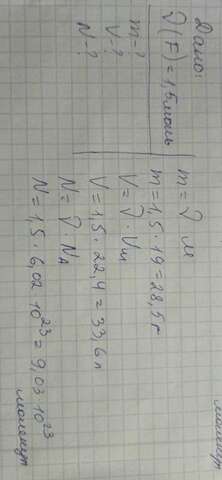 Дано:
ν(F)=1,5моль
m-?
V-?
N-?
m=ν M
m=1,5·19=28,5г
V=ν·Vм
V=1,5·22,4=33,6л
N=ν·NA
N=1,5·6,02·10²³=9,03·10²³
молекул
молекул